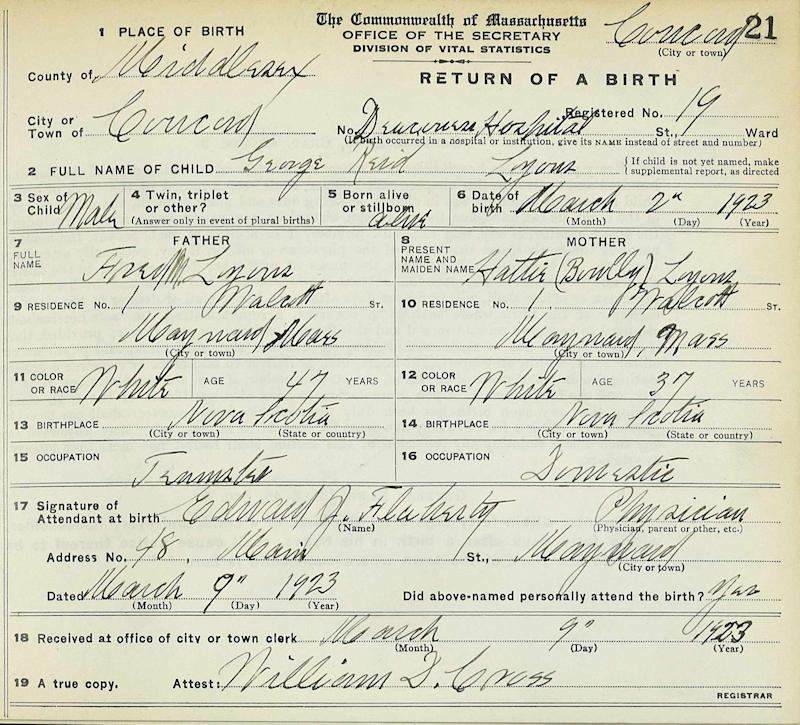 The Commonwealth of Massachusetts
OFFICE OF THE SECRETARY
DIVISION OF VITAL STATISTICS
RETURN OF A BIRTH
Concord 21
(City or town)
1 PLACE OF BIRTH
County of Middlesex
Registered No. 19
City or Town of Concord No. Deaconess Hospital St., Ward
(If birth occurred in a hospital or institution, give its NAME instead of street and number)
2 FULL NAME OF CHILD George Reid Lyons { If child is not yet named, make supplemental report, as directed
3 Sex of Child Male 4 Twin, triplet or other? (Answer only in event of plural births) 5 Born alive or stillborn alive 6 Date of birth March 2" 1923
(Month) (Day) (Year)
7 FULL NAME FATHER Fred M. Lyons
8 PRESENT NAME AND MAIDEN NAME MOTHER Hattie Lyons
9 RESIDENCE No. 1 Walcott ST.
Maynard Mass
(City or town)
10 RESIDENCE No. 1. Walcott ST.
Maynard, Mass
(City or town)
11 COLOR OR RACE White AGE 47 YEARS
12 COLOR OR RACE White AGE 37 YEARS
13 BIRTHPLACE Nova Scotia
(City or town) (State or country)
14 BIRTHPLACE Nova Scotia
(City or town) (State or country)
15 OCCUPATION Teamster
16 OCCUPATION Domestic
17 Signature of Attendant at birth Edward J. Flaherty Physician
(Name) (Physician, parent or other, etc.)
Address No. 48, Main St., Maynard
(City or town)
Dated March 9" 1923 Did above-named personally attend the birth? Yes
(Month) (Day) (Year)
18 Received at office of city or town clerk March 9" 1923
(Month) (Day) (Year)
19 A true copy. Attest: William D. Cross
REGISTRAR